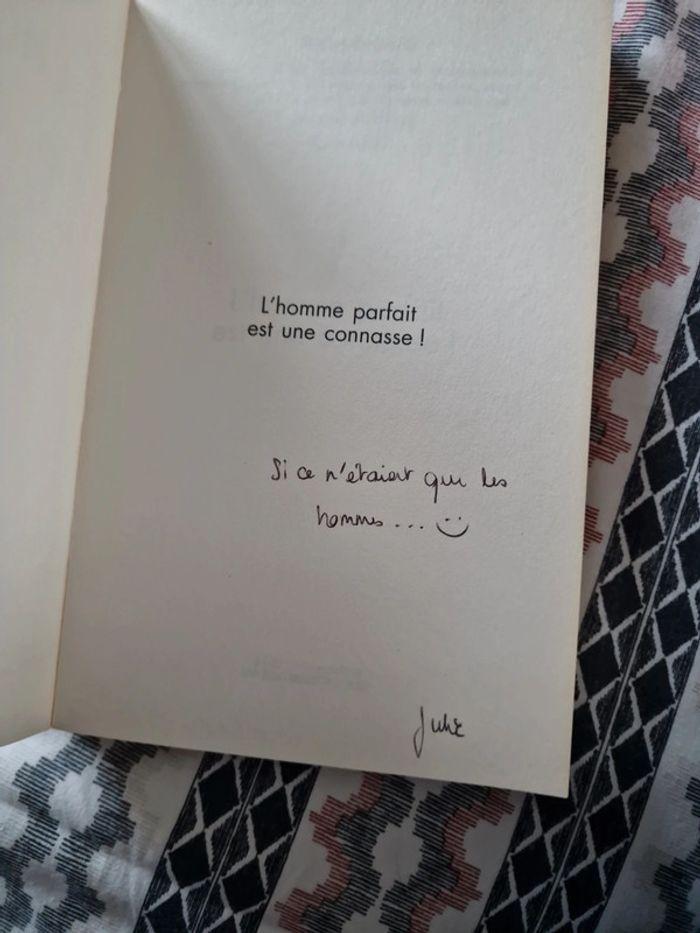 L'homme parfait
est une connasse !
Si ce n'étaient que les
hommes ...
Julie